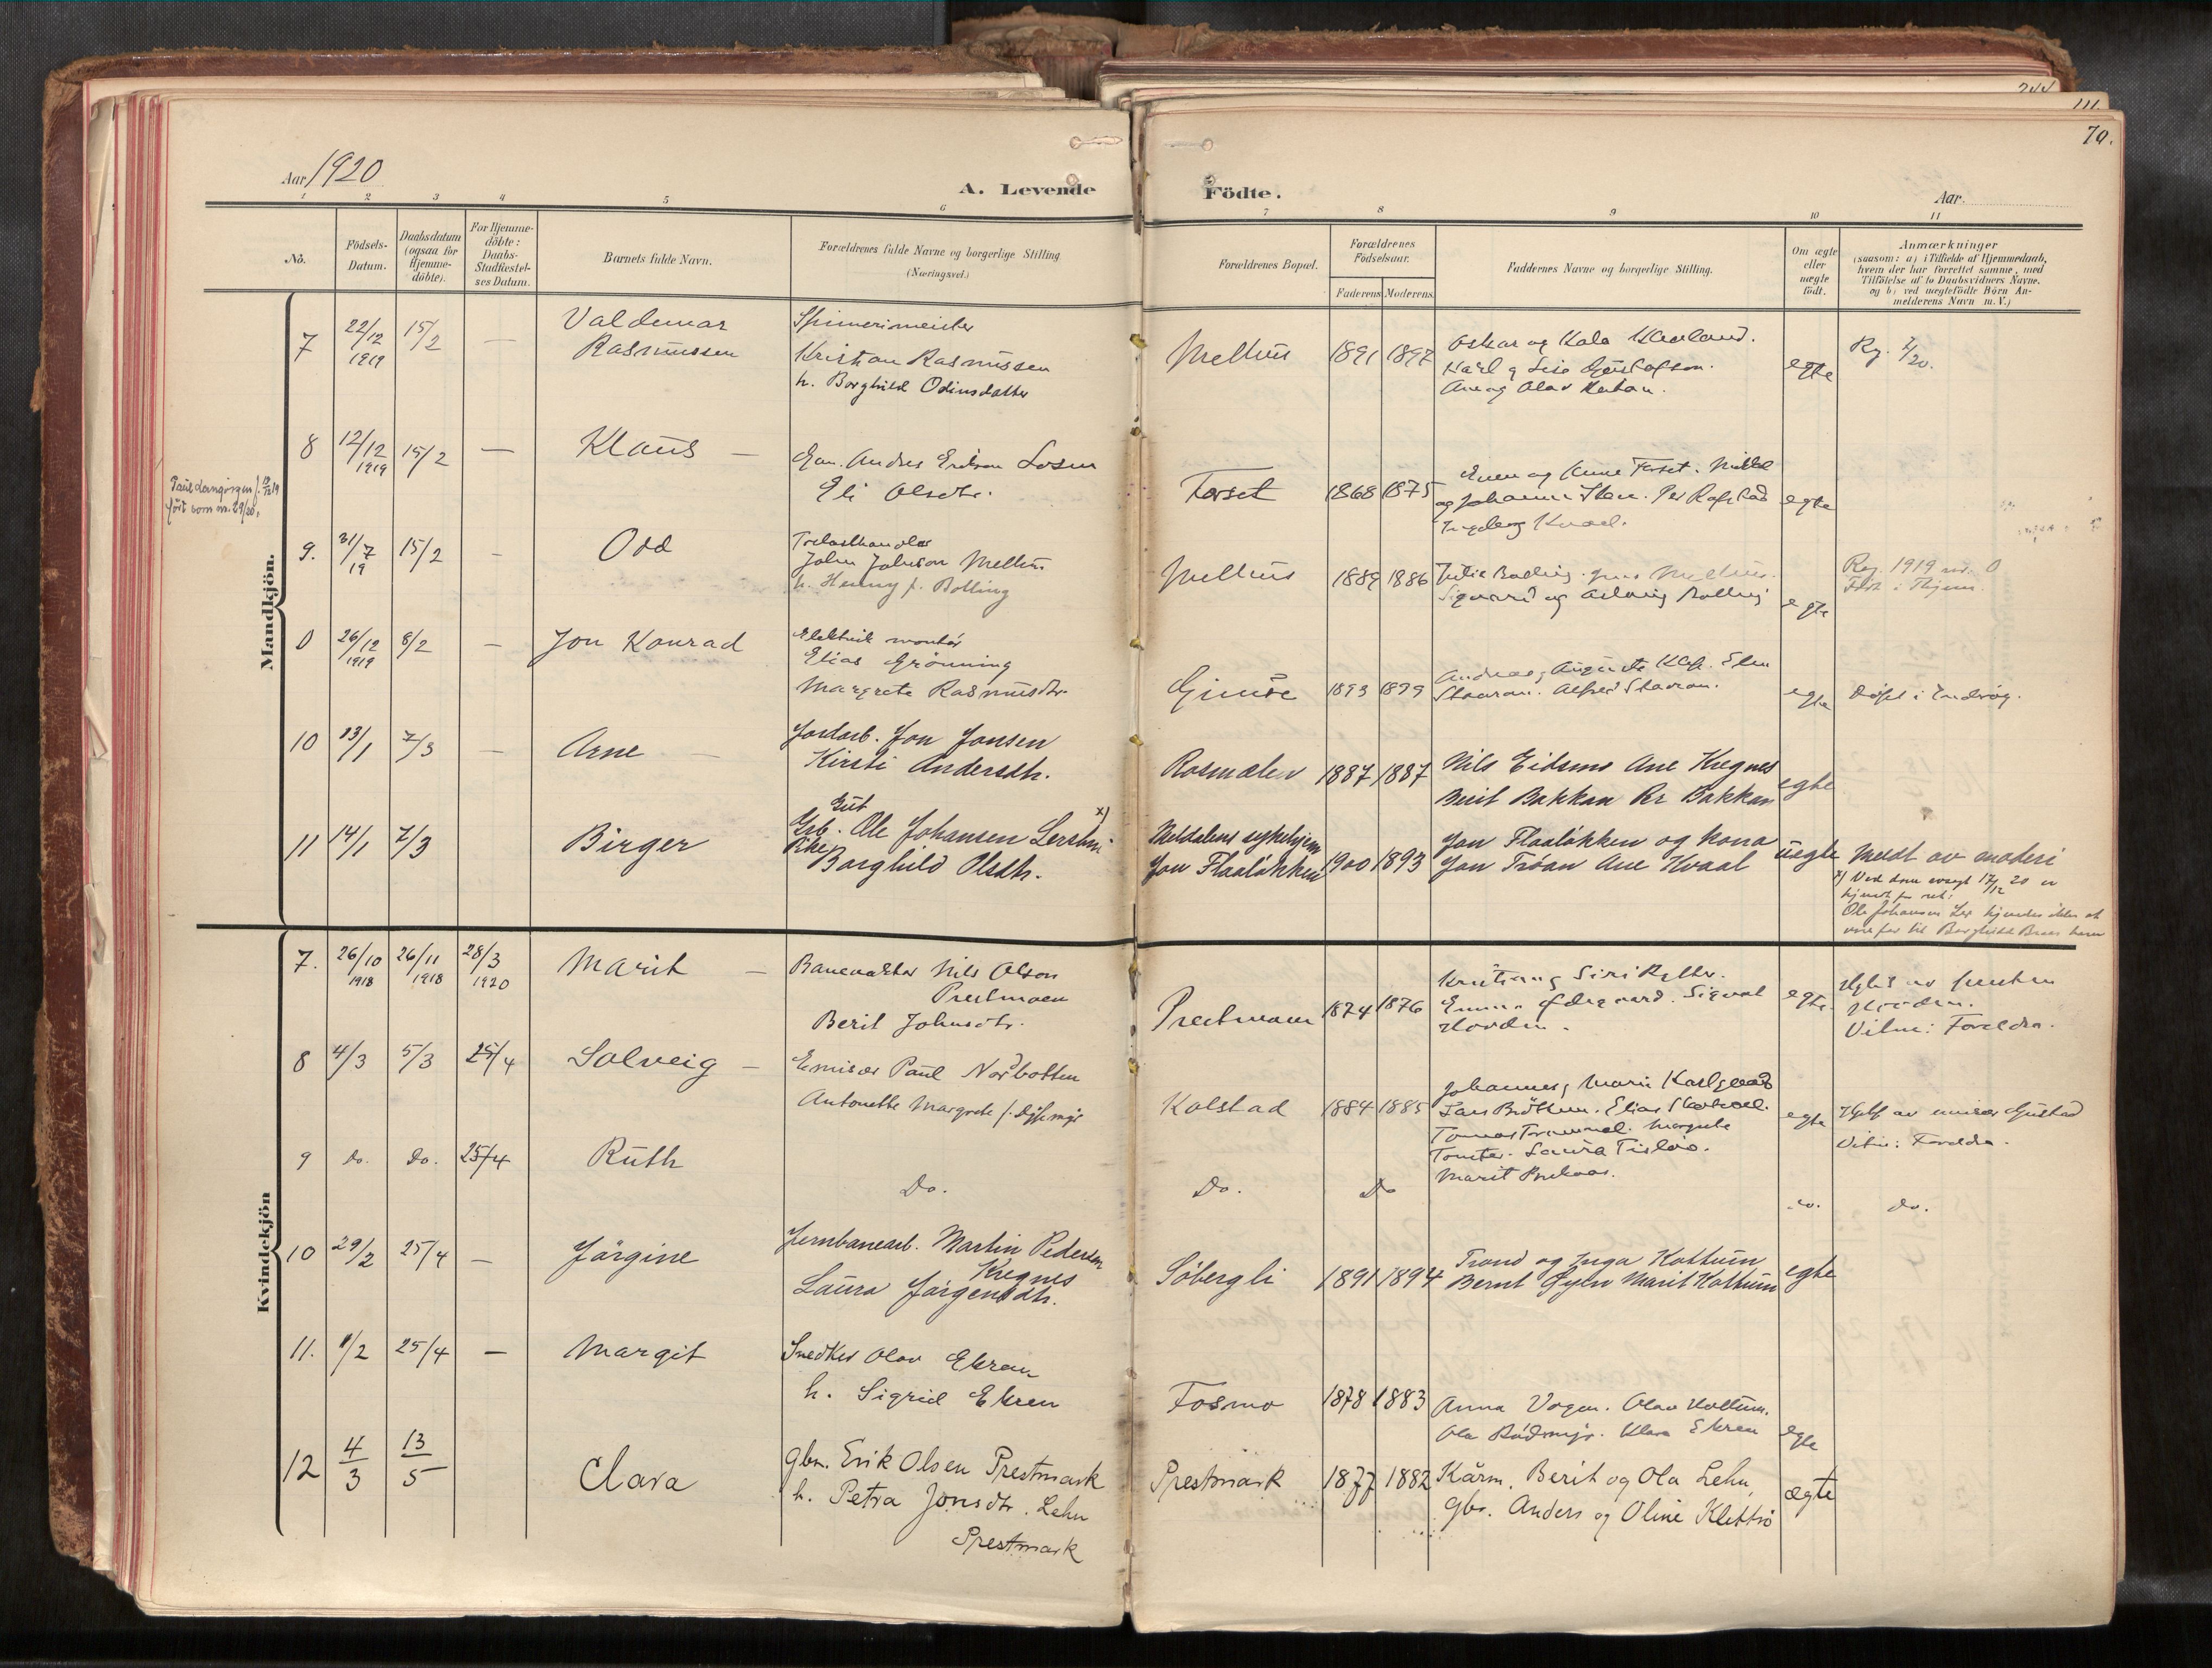 70.
Aar 1920
A. Levende Födte.
Aar.
1 2 3 4 5 6 7 8 9 10 11
No.
Födsels-
Datum.
Daabsdatum
(ogsaa for
Hjemme-
döbte).
For Hjemme-
döbte:
Daabs-
Stadfæstel-
ses Datum.
Barnets fulde Navn.
Forældrenes fulde Navne og borgerlige Stilling
(Næringsvei.)
Forældrenes Bopæl.
Forældrenes
Födselsaar.
Faderens Moderens
Faddernes Navne og borgerlige Stilling.
Om ægte
eller
uægte
födt.
Anmærkninger
(saasom: a) i Tilfælde af Hjemmedaab,
hvem der har forrettet samme, med
Tilföielse af to Daabsvidners Navne.
og b) ved uægtefödte Börn An-
melderens Navn m. V.)
Mandkjön.
7 22/12 1919 15/2 —
Valdemar
Rasmussen
Spinnerimeister
Kristian Rasmussen
h. Borghild Odinsdatter
Melhus 1891 1897
Oskar og Kala
Karl og Lise Gustafson.
Ane og Olav
egte
Reg. 20.
8 12/12 1919 15/2 —
Klaus —
Gm. Andres Erikson Losen
Eli Olsdtr.
Forset 1868 1875
Even og Anne Forset.
og Johanna Per
Ingeborg
egte
Paul Langörgen
fört som nr. 29/20.
9. 31/7 19 15/2 -
Odd
Trelasthandler
John Johnson Melhus
h. Henny f. Bolling
Melhus 1889 1886
Julie Bolling. Melhus.
Sigvard og Bolling
egte
Reg. 1919 nr. 0
0 26/12 1919 8/2 —
Jon Konrad
Elektrik montör
Elias Grönning
Margrete Rasmusdtr.
Gimse 1893 1899
Andreas og Auguste
Alfred
egte
Döpt i
10 13/1 7/3 —
Arne —
Jordarb. Jon Jonsen
Kirsti Andersdtr.
Rosmælen 1887 1887
Nils Eidsmo Ane Kregnes
Berit Bakkan Per Bakkan
egte
11 14/1 7/3
Birger
Gut
Grb. Ole Johansen x)
Pike
Borghild Olsdtr.
Meldalens sykehjem
Jon Flaalökken
1900 1893
Jon Flaalökken og kona
Jon Tröan Ane Kvaal
uegte
Meldt av moderi
x) Ved dom avsagt 17/12 20 er
kjendt for ret:
Ole Johansen Ler kjendes ikke at
være far til Borghild barn
Kvindekjön
7. 26/10 1918 26/11 1918 28/3 1920
Marit —
Banevakter Nils Olson
Prestmoen
Berit Johnsdtr.
Prestmoen 1874 1876
Siri
Emma Sigvat
egte.
Hjdbt av
Vitne: Foreldra.
8 4/3 5/3 25/4
Solveig —
Emisær Paul Norbotten
Antonette Margrete f.
Kolstad 1884 1885
Johannes og Marie
Lars Elias
Margrete
Laura
Marit
egte
Hjdb. av emisær Gustad
Vitne: Foreldra.
9 do. do. 25/4
Ruth
Do.
Do. Do
do. do.
10 29/2 25/4 —
Jörgine
Jernbanearb. Martin Pedersen
Kregnes
Laura Jörgensdtr.
Söbergli 1891 1894
Trond og Inga Kattum
Bernt Öyen Marit Kattum
egte
11. 1/2 25/4 —
Margit
Snedker Olav Ekren
h. Sigrid Ekren
Fosmo 1878 1883
Anna Vogen. Olav
Ola Rödsmyr. Klara Ekren
egte
12 4/3 13/5
Clara
gbr. Erik Olsen Prestmark
h. Petra Jonsdtr. Lehn
Prestmark
Prestmark 1877 1882
Kårm. Berit og Ola Lehn,
gbr. Anders og Oline Klettrö
ægte